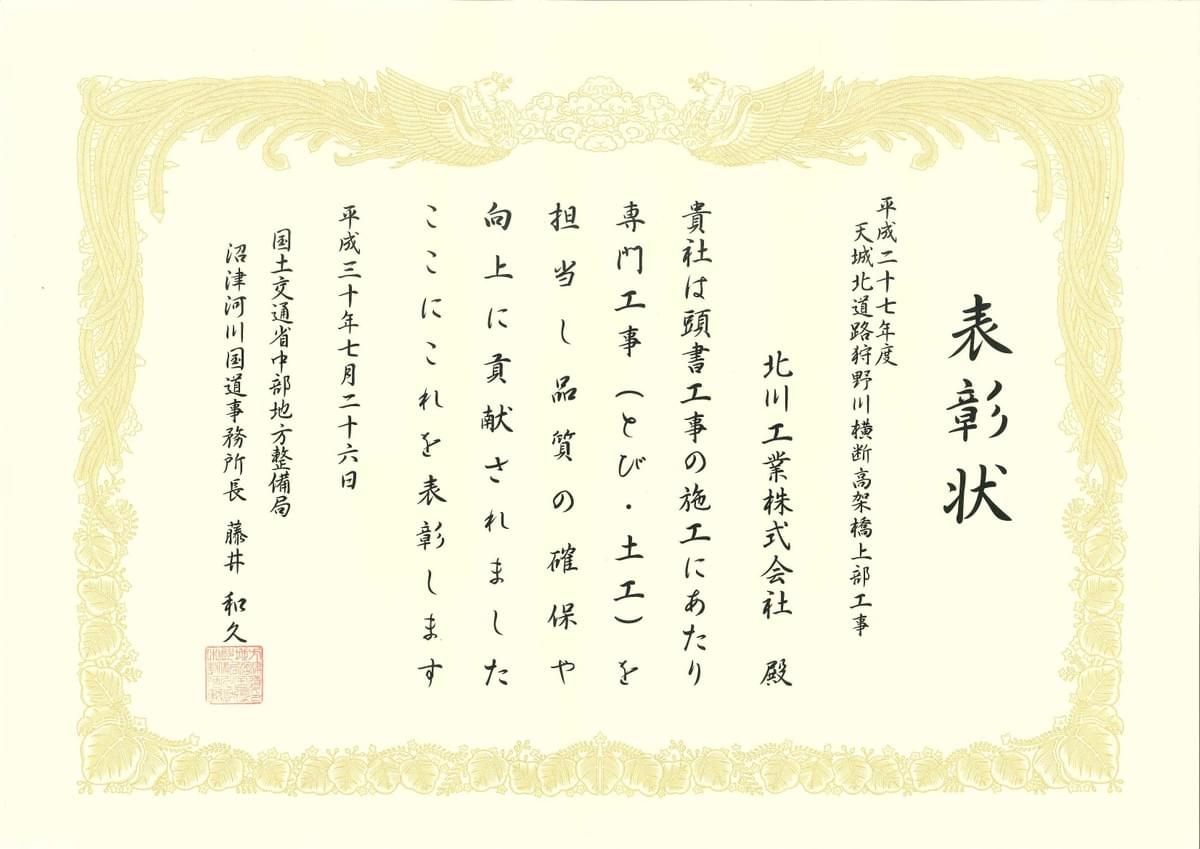 表彰状
平成二十七年度
天城北道路狩野川横断高架橋上部工事
北川工業株式会社 殿
貴社は頭書工事の施工にあたり
専門工事(とび・土工)を
担当し品質の確保や
向上に貢献されました
ここにこれを表彰します
平成三十年七月二十六日
国土交通省中部地方整備局
沼津河川国道事務所長 藤井 和久